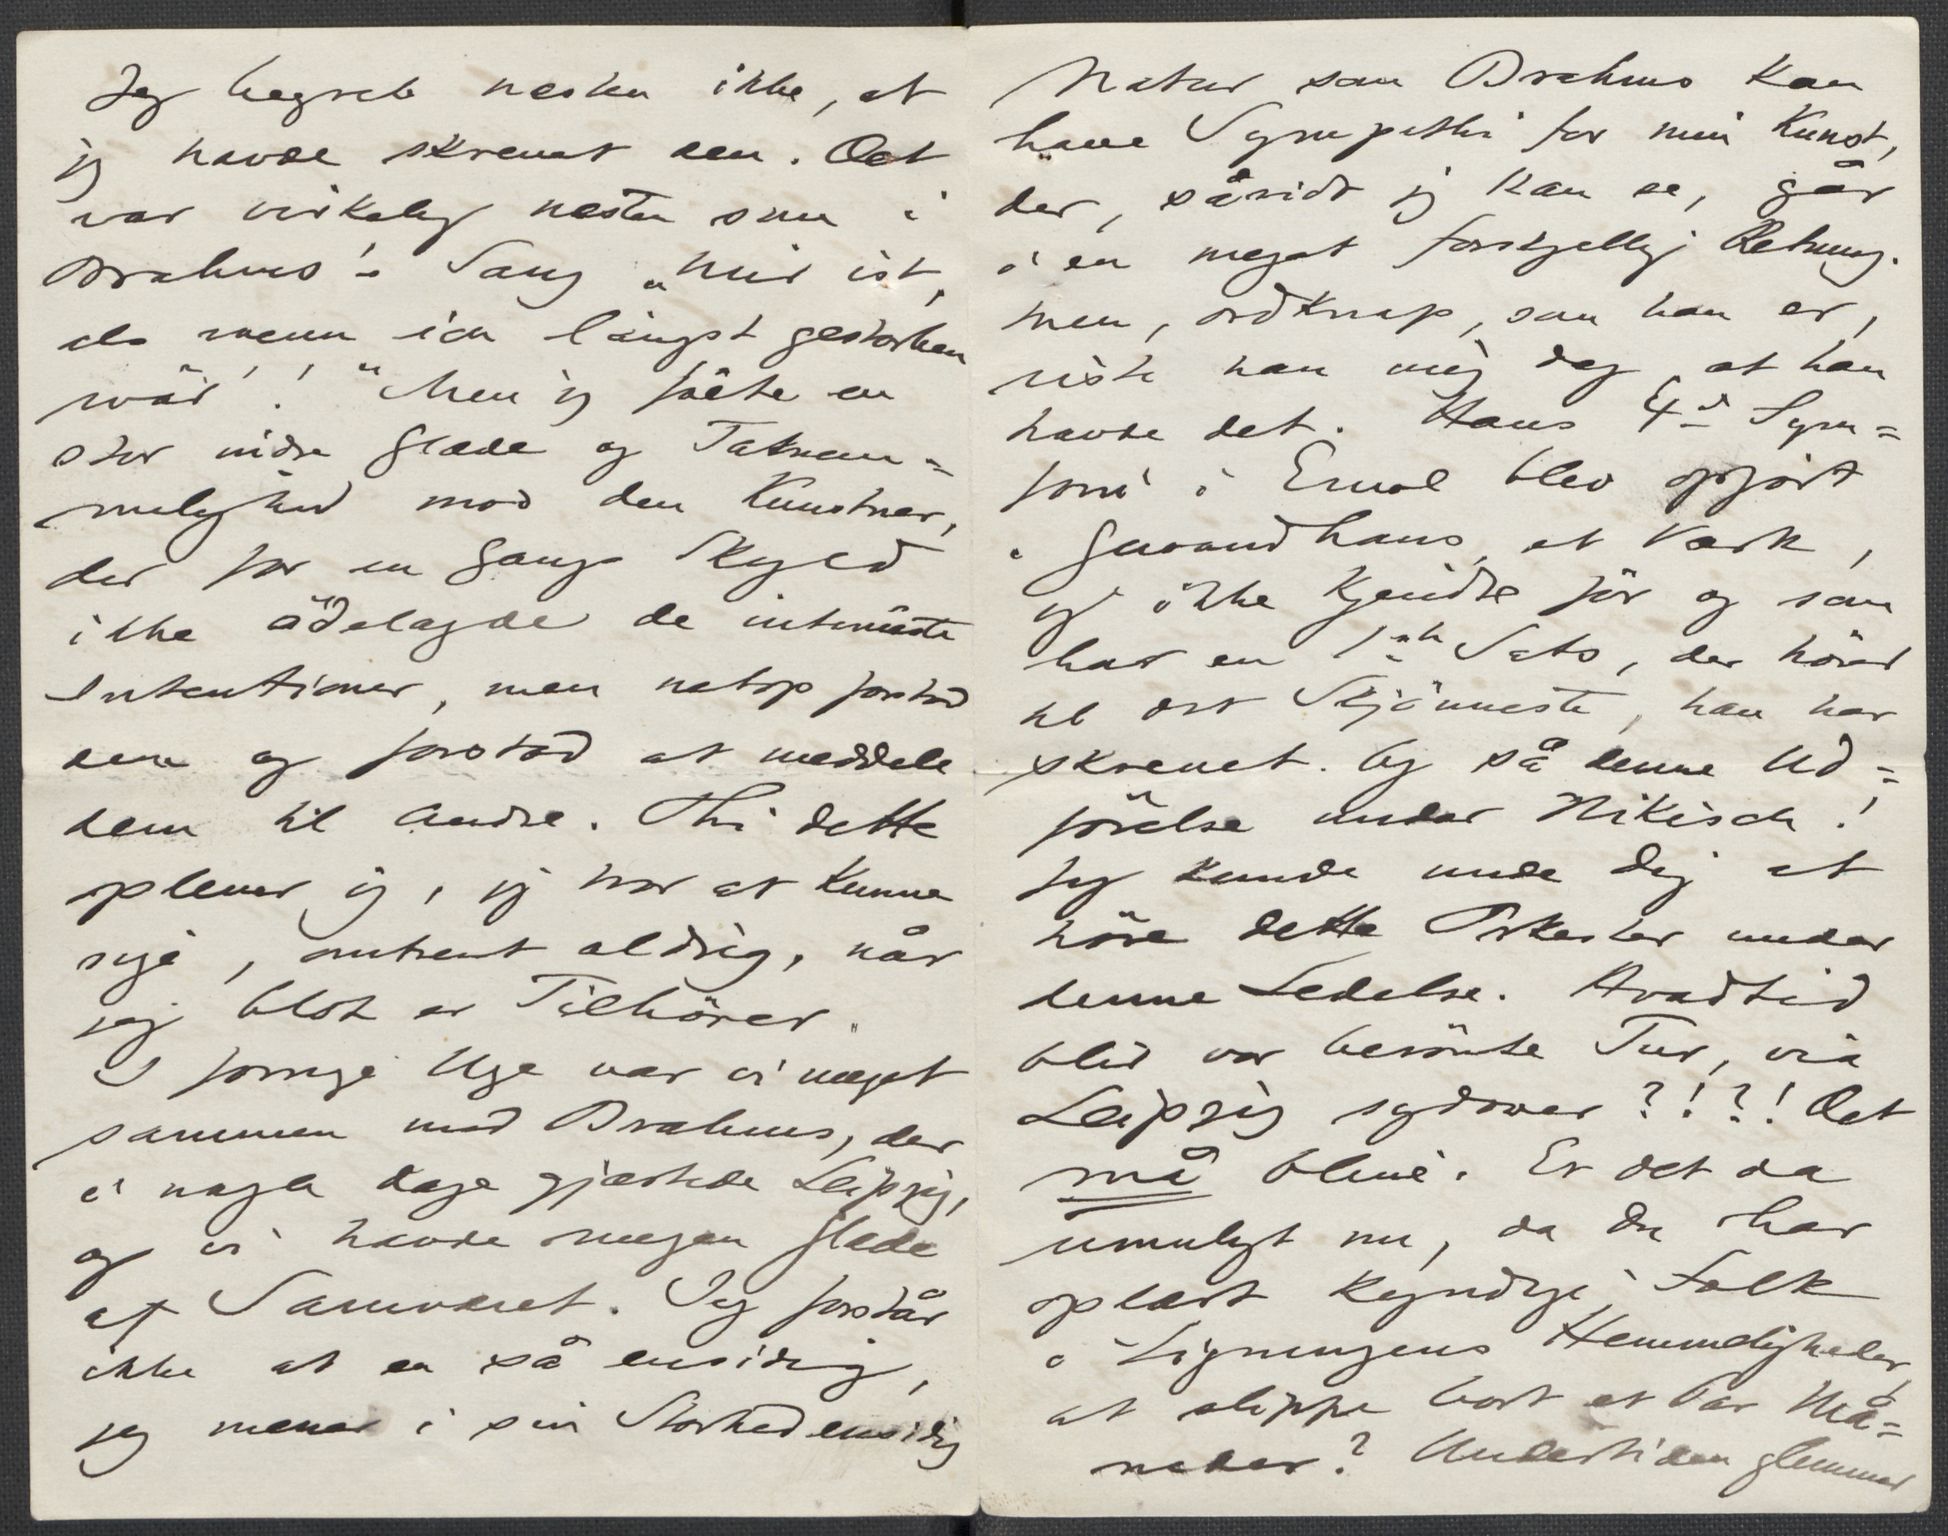 Jeg begreb næsten ikke, at
jeg havde skrevet den. Det
var virkelig næsten som i
Brahms's Sang „Mir ist,
als wenn ich längst gestorben
wär'!" Men jeg følte en
stor indre Glæde og Taknem=
melighed mod den Kunstner,
der for en Gangs Skyld
ikke ödelagde de intimeste
Intentioner, men netop forstod
dem og forstod at meddele
dem til Andre. Thi dette
oplever jeg, jeg tror at kunne
sige, omtrent aldrig, når
jeg blot er Tilhörer.
I forrige Uge var vi meget
sammen med Brahms, der
i nogle Dage gjæstede Leipzig,
og vi havde megen Glæde
af Samværet. Jeg forstår
ikke at en så ensidig,
jeg mener i sin Storhed ensidig
Natur som Brahms kan
have Sympathi for min Kunst,
der, såvidt jeg kan se, går
i en meget forskjellig Retning.
Men, ordknap, som han er,
viste han mig dog, at han
havde det. Hans 4d Sym=
foni i Emol blev opfört
i Gewandhaus, et Værk,
jeg ikke kjendte för og som
har en 1ste Sats, der hörer
til det Skjönneste, han har
skrevet. Og så denne Ud=
förelse under Nikisch!
Jeg kunde unde Dig at
höre dette Orkester under
denne Ledelse. Hvadtid
blir vor berömte Tur, via
Leipzig sydover?!?! Det
må blive. Er det da
umuligt nu, da Du har
oplært kyndige Folk
i Ligningens Hemmeligheder,
at slippe bort et Par Må=
neder? Undertiden glemmer